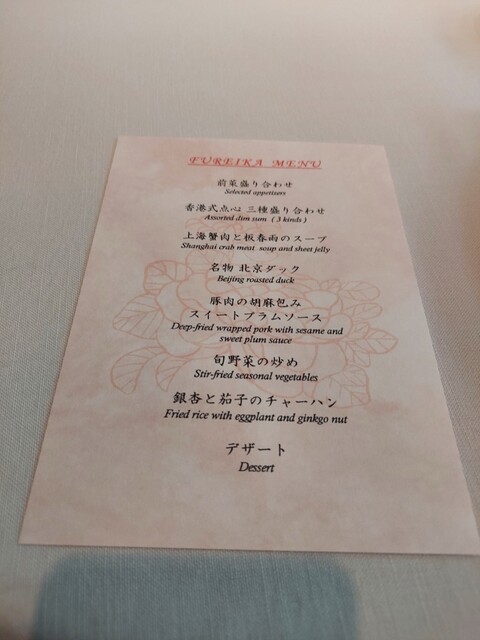 FUREIKA MENU
前菜盛り合わせ
Selected appetizers
香港式点心 三種盛り合わせ
Assorted dim sum ( 3 kinds )
上海蟹肉と板春雨のスープ
Shanghai crab meat soup and sheet jelly
名物 北京ダック
Beijing roasted duck
豚肉の胡麻包み
スイートプラムソース
Deep-fried wrapped pork with sesame and
sweet plum sauce
旬野菜の炒め
Stir-fried seasonal vegetables
銀杏と茄子のチャーハン
Fried rice with eggplant and ginkgo nut
デザート
Dessert